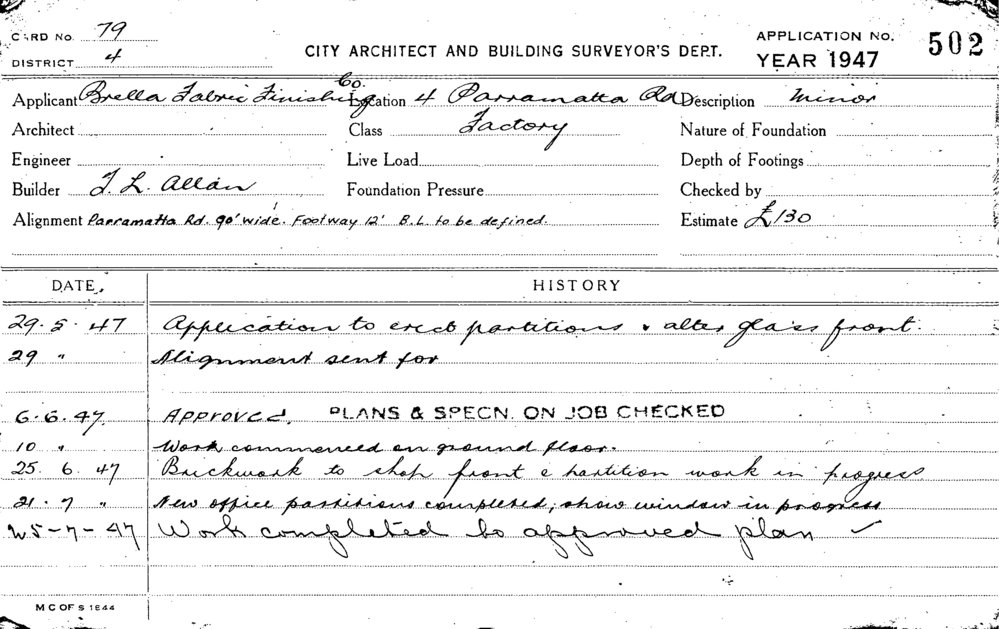 CARD No. 79
DISTRICT 4
CITY ARCHITECT AND BUILDING SURVEYOR'S DEPT.
APPLICATION No. 502
YEAR 1947
Applicant Brella Fabric Finishing Co. Location 4 Parramatta Rd Description Minor
Architect Class Factory Nature of Foundation
Engineer Live Load Depth of Footings
Builder T. L. Allan Foundation Pressure Checked by
Alignment Parramatta Rd. 90' wide. Footway 12' B.L. to be defined. Estimate £130
DATE HISTORY
29. 5. 47 Application to erect partitions & alter glass front.
29 " Alignment sent for
6. 6. 47 APPROVED. PLANS & SPECN. ON JOB CHECKED
10 " Work commenced on ground floor.
25. 6. 47 Brickwork to shop front & partition work in progress
21. 7 " New office partitions completed; show window in progress
25-7-47 Work completed to approved plan ✓
M C OF S 1944